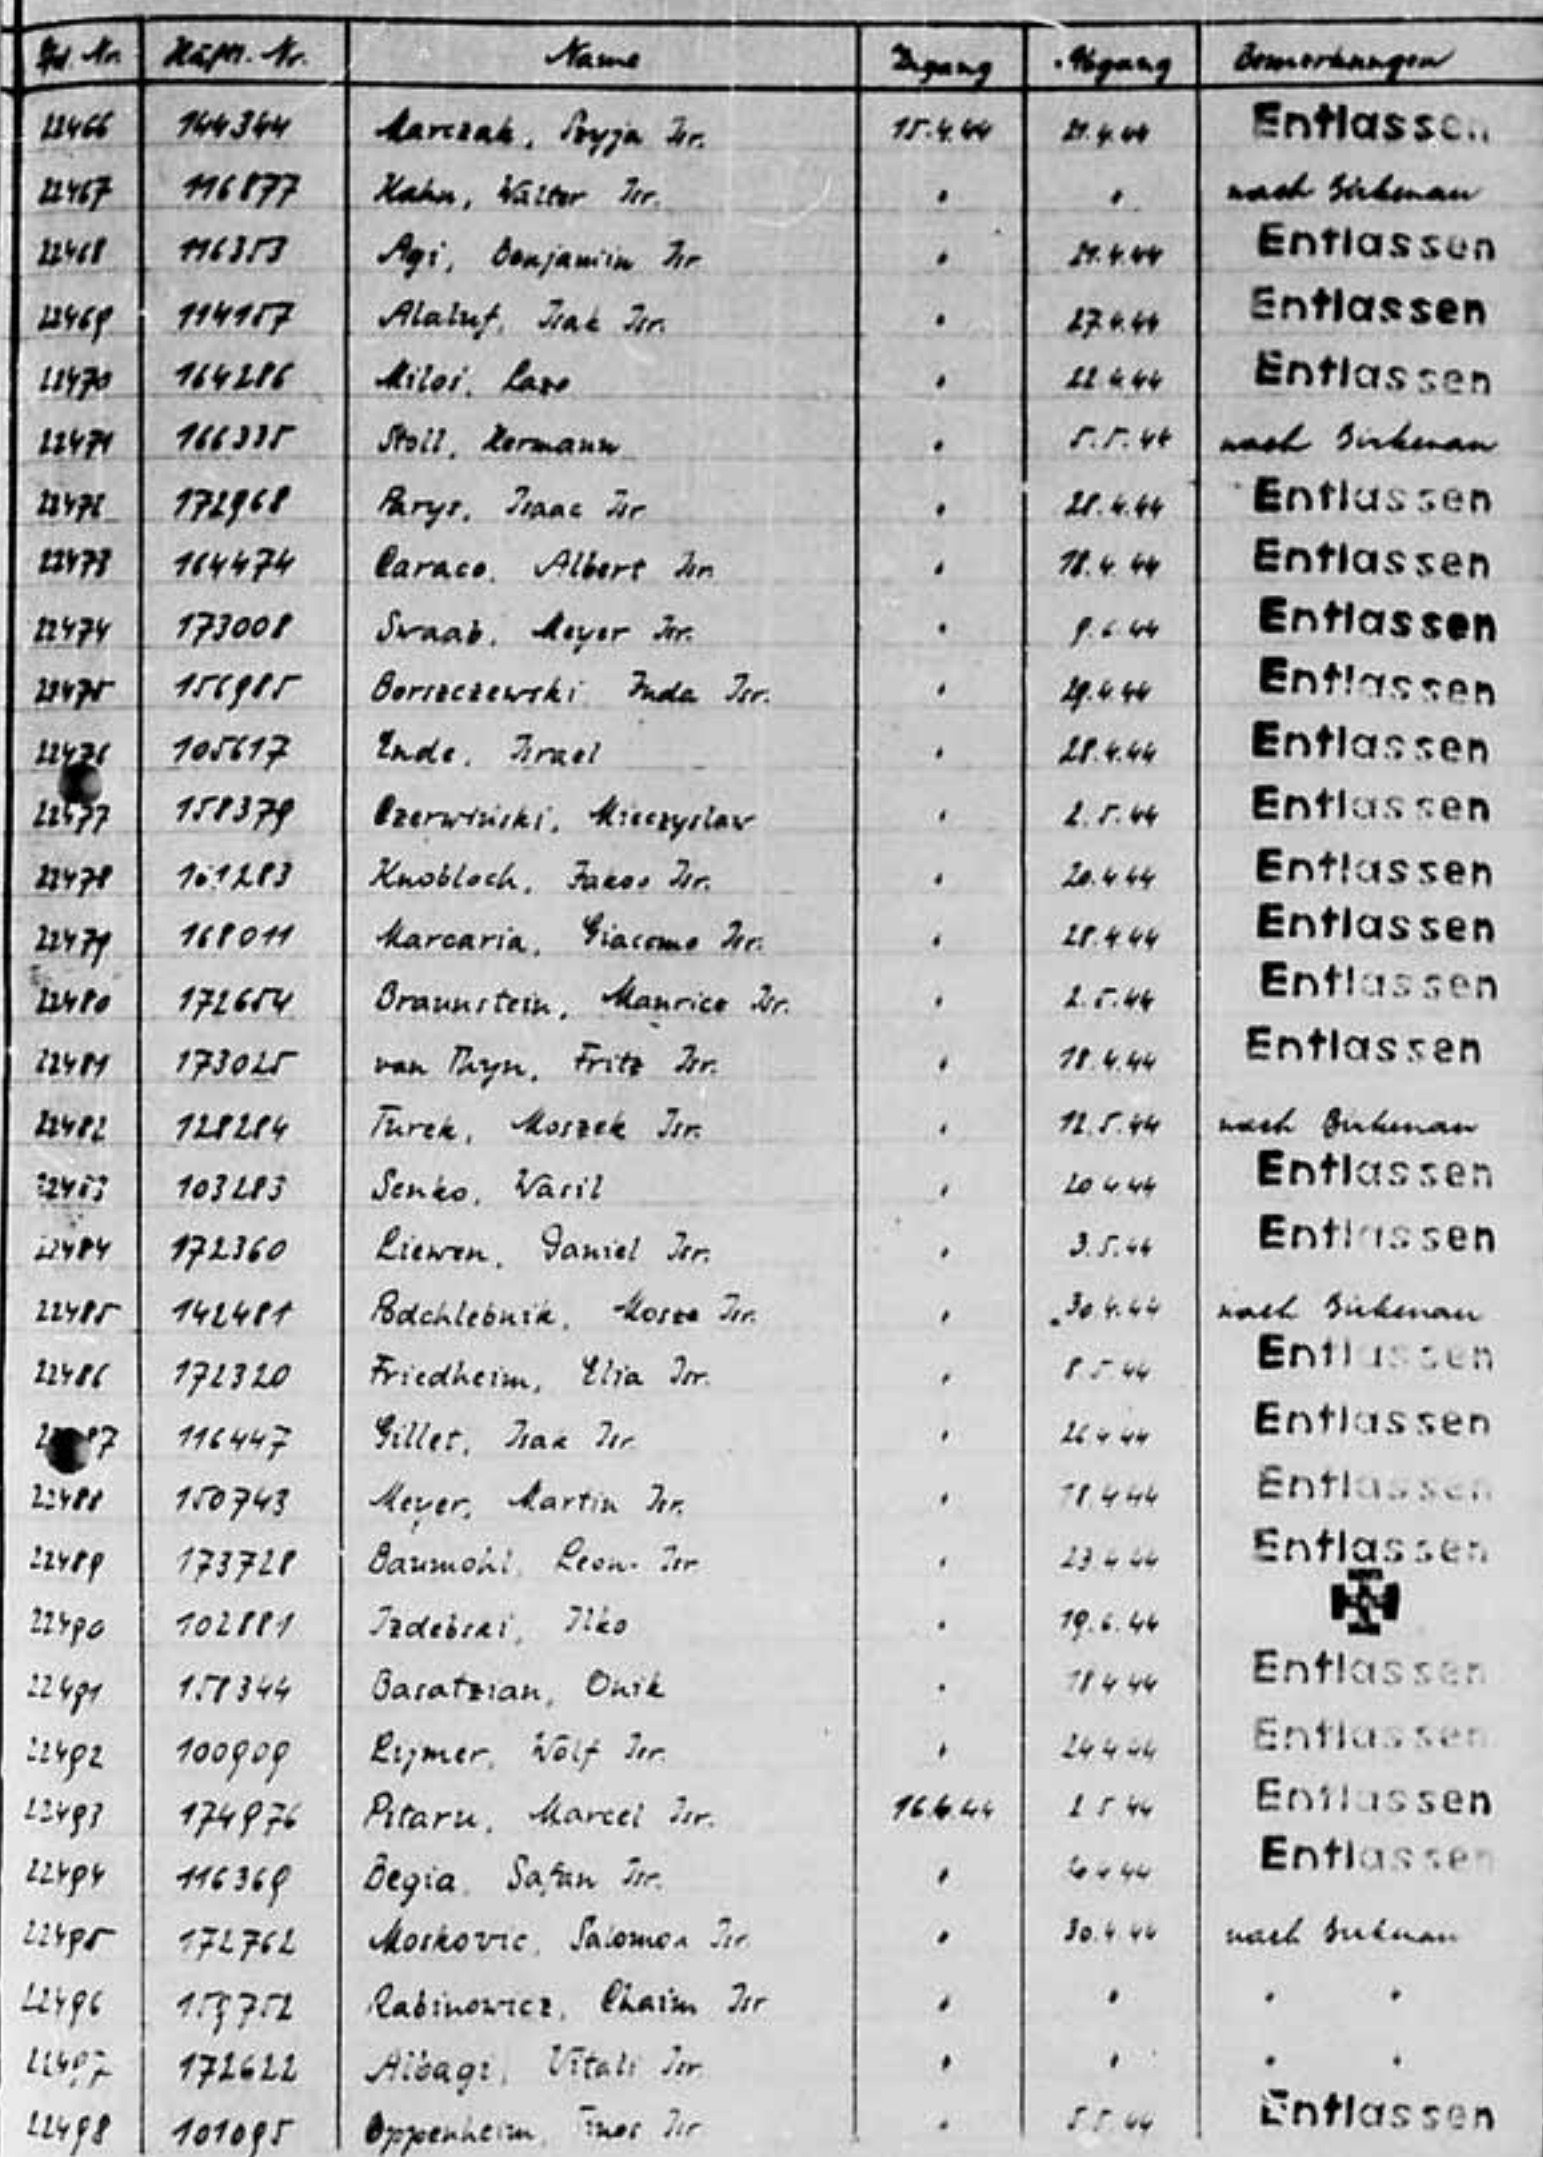 Lfd. Nr. Häftl. Nr. Name Zugang Abgang Bemerkungen
22466 144344 Marczak, Szyja Isr. 15.4.44 21.4.44 Entlassen
22467 116877 Hahn, Walter Isr. " " nach Birkenau
22468 116353 Agi, Benjamin Isr " 21.4.44 Entlassen
22469 114157 Alaluf, Isak Isr. " 27.4.44 Entlassen
22470 164286 Miloš, Lazo " 22.4.44 Entlassen
22471 166335 Stoll, Hermann " 5.5.44 nach Birkenau
22472 172968 Parys, Isaac Isr " 28.4.44 Entlassen
22473 164474 Caraco, Albert Isr. " 18.4.44 Entlassen
22474 173008 Swaab, Meyer Isr. " 9.6.44 Entlassen
22475 156985 Borszczewski Juda Isr. " 29.4.44 Entlassen
22476 105617 Ende, Israel " 28.4.44 Entlassen
22477 158379 Czerwiński, Mieczyslaw " 2.5.44 Entlassen
22478 161283 Knobloch, Jakob Isr. " 20.4.44 Entlassen
22479 168011 Marcaria, Giacomo Isr. " 28.4.44 Entlassen
22480 172654 Braunstein, Maurice Isr. " 2.5.44 Entlassen
22481 173025 van Thyn, Fritz Isr. " 18.4.44 Entlassen
22482 128284 Turek, Moszek Isr. " 12.5.44 nach Birkenau
22483 103283 Senko, Wasil " 20 4 44 Entlassen
22484 172360 Liewen, Daniel Isr. " 3.5.44 Entlassen
22485 142481 Podchlebnik, Mosze Isr. " 30.4.44 nach Birkenau
22486 172320 Friedheim, Elia Isr. " 8 5 44 Entlassen
116447 Gillet, Isak Isr " 26 4 44 Entlassen
22488 150743 Meyer, Martin Isr. " 18 4 44 Entlassen
22489 173728 Baumöhl, Leon Isr " 23 4 44 Entlassen
22490 102881 Izdebski, Ilko " 19.6.44
22491 158344 Basatzian, Onik " 18 4 44 Entlassen
22492 100909 Rymer, Wolf Isr. " 24 4 44 Entlassen
22493 174976 Pitaru, Marcel Isr. 16.4.44 2 5 44 Entlassen
22494 116369 Begia, Safan Isr. " Entlassen
22495 172762 Moskovic, Salomon Isr. " 30.4 44 nach Birkenau
22496 159752 Rabinowicz, Chaim Isr " " " "
22497 172622 Albagi, Vitali Isr. " " " "
22498 101095 Oppenheim, Isr " 5.5.44 Entlassen